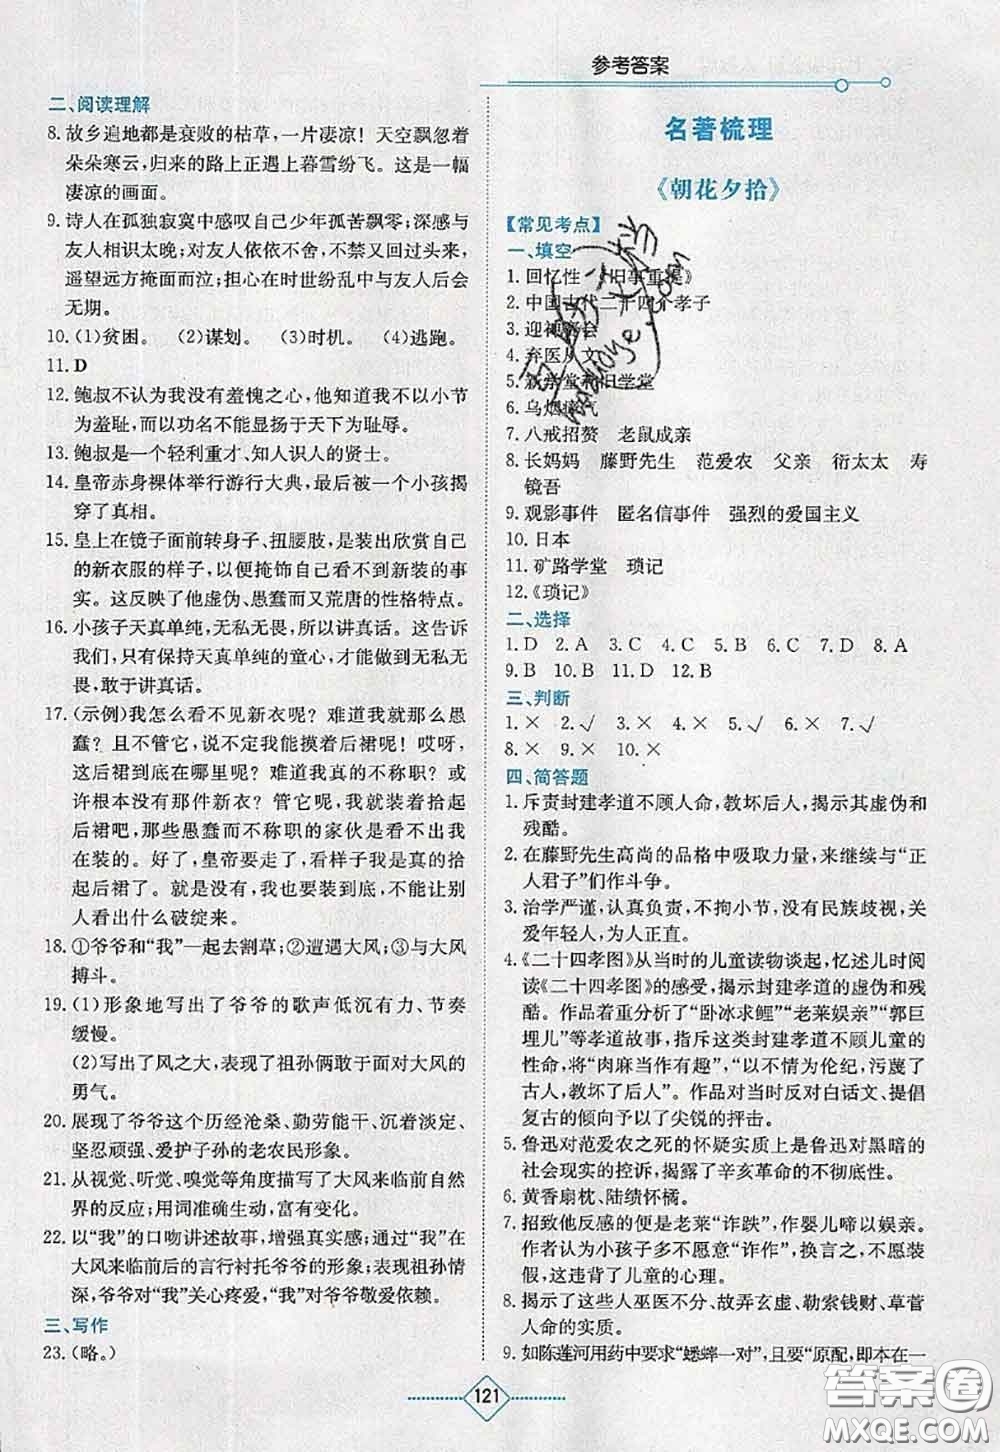 参考答案
二、阅读理解
8. 故乡遍地都是衰败的枯草，一片凄凉！天空飘忽着
朵朵寒云，归来的路上正遇上暮雪纷飞。这是一幅
凄凉的画面。
9. 诗人在孤独寂寞中感叹自己少年孤苦飘零；深感与
友人相识太晚；对友人依依不舍，不禁又回过头来，
遥望远方掩面而泣；担心在时世纷乱中与友人后会
无期。
10. (1)贫困。 (2)谋划。 (3)时机。 (4)逃跑。
11. D
12. 鲍叔不认为我没有羞愧之心，他知道我不以小节
为羞耻，而以功名不能显扬于天下为耻辱。
13. 鲍叔是一个轻利重才、知人识人的贤士。
14. 皇帝赤身裸体举行游行大典，最后被一个小孩揭
穿了真相。
15. 皇上在镜子面前转身子、扭腰肢，是装出欣赏自己
的新衣服的样子，以便掩饰自己看不到新装的事
实。这反映了他虚伪、愚蠢而又荒唐的性格特点。
16. 小孩子天真单纯，无私无畏，所以讲真话。这告诉
我们，只有保持天真单纯的童心，才能做到无私无
畏，敢于讲真话。
17. (示例)我怎么看不见新衣呢？难道我就那么愚
蠢？且不管它，说不定我能摸着后裙呢！哎呀，
这后裙到底在哪里呢？难道我真的不称职？或
许根本没有那件新衣？管它呢，我就装着拾起
后裙吧，那些愚蠢而不称职的家伙是看不出我
在装的。好了，皇帝要走了，看样子我是真的拾
起后裙了。我一定要装到底，不能让别
人看出什么破绽来。
18. ①爷爷和“我”一起去割草；②遭遇大风；③与大风
搏斗。
19. (1)形象地写出了爷爷的歌声低沉有力、节奏
缓慢。
(2)写出了风之大，表现了祖孙俩敢于面对大风的
勇气。
20. 展现了爷爷这个历经沧桑、勤劳能干、沉着淡定、
坚忍顽强、爱护子孙的老农民形象。
21. 从视觉、听觉、嗅觉等角度描写了大风来临前自然
界的反应；用词准确生动，富有变化。
22. 以“我”的口吻讲述故事，增强真实感；通过“我”在
大风来临前后的言行衬托爷爷的形象；表现祖孙情
深，爷爷对“我”关心疼爱，“我”对爷爷敬爱依赖。
三、写作
23. (略。)
名著梳理
《朝花夕拾》
【常见考点】
一、填空
1. 回忆性 《旧事重提》
2. 中国古代二十四个孝子
3. 迎神赛会
4. 弃医从文
5. 新学堂和旧学堂
6. 乌烟瘴气
7. 八戒招赘 老鼠成亲
8. 长妈妈 藤野先生 范爱农 父亲 衍太太 寿
镜吾
9. 观影事件 匿名信事件 强烈的爱国主义
10. 日本
11. 矿路学堂 琐记
12. 《琐记》
二、选择
1. D 2. A 3. C 4. C 5. B 6. C 7. D 8. A
9. B 10. B 11. D 12. B
三、判断
1. × 2. √ 3. × 4. × 5. √ 6. × 7. √
8. × 9. × 10. ×
四、简答题
1. 斥责封建孝道不顾人命，教坏后人，揭示其虚伪和
残酷。
2. 在藤野先生高尚的品格中吸取力量，来继续与“正
人君子”们作斗争。
3. 治学严谨，认真负责，不拘小节，没有民族歧视，关
爱年轻人，为人正直。
4. 《二十四孝图》从当时的儿童读物谈起，忆述儿时阅
读《二十四孝图》的感受，揭示封建孝道的虚伪和残
酷。作品着重分析了“卧冰求鲤”“老莱娱亲”“郭巨
埋儿”等孝道故事，指斥这类封建孝道不顾儿童的
性命，将“肉麻当作有趣”，“以不情为伦纪，污蔑了
古人，教坏了后人”。作品对当时反对白话文、提倡
复古的倾向予以了尖锐的抨击。
5. 鲁迅对范爱农之死的怀疑实质上是鲁迅对黑暗的
社会现实的控诉，揭露了辛亥革命的不彻底性。
6. 黄香扇枕、陆绩怀橘。
7. 招致他反感的便是老莱“诈跌”，作婴儿啼以娱亲。
作者认为小孩子多不愿意“诈作”，换言之，不愿装
假，这违背了儿童的心理。
8. 揭示了这些人巫医不分、故弄玄虚、勒索钱财、草菅
人命的实质。
9. 如陈莲河用药中要求“蟋蟀一对”，且要“原配，即本在一
121
答案圈
MXQE.COM